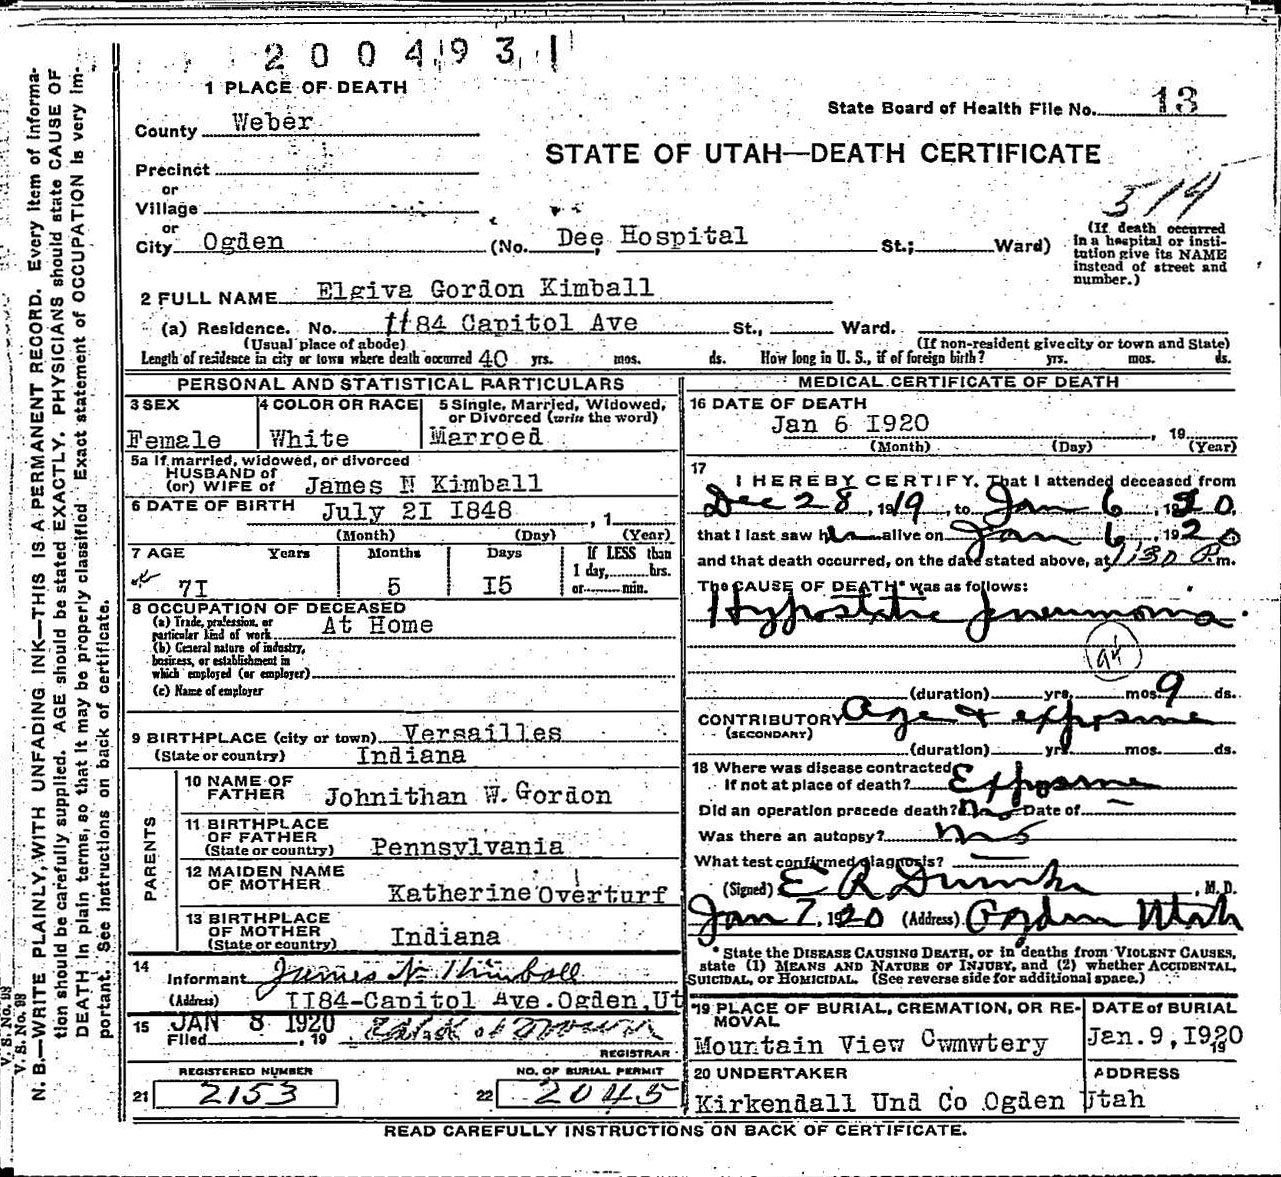 200493
1 PLACE OF DEATH
State Board of Health File No. 13
County Weber
STATE OF UTAH—DEATH CERTIFICATE
Precinct
or
Village
or
City Ogden (No. Dee Hospital St.; Ward)
(If death occurred in a hospital or insti-
tution give its NAME instead of street and number.)
2 FULL NAME Elgiva Gordon Kimball
(a) Residence. No. 1184 Capitol Ave St., Ward.
(Usual place of abode) (If non-resident give city or town and State)
Length of residence in city or town where death occurred 40 yrs. mos. ds. How long in U. S., if of foreign birth? yrs. mos. ds.
PERSONAL AND STATISTICAL PARTICULARS
3 SEX Female
4 COLOR OR RACE White
5 Single, Married, Widowed, or Divorced (write the word) Marroed
5a If married, widowed, or divorced
HUSBAND of
(or) WIFE of James N Kimball
6 DATE OF BIRTH July 2I I848 , 1
(Month) (Day) (Year)
7 AGE Years 7I Months 5 Days I5 If LESS than 1 day, hrs. or min.
8 OCCUPATION OF DECEASED
(a) Trade, profession, or particular kind of work At Home
(b) General nature of industry, business, or establishment in which employed (or employer)
(c) Name of employer
9 BIRTHPLACE (city or town) Versailles
(State or country) Indiana
PARENTS
10 NAME OF FATHER Johnithan W. Gordon
11 BIRTHPLACE OF FATHER (State or country) Pennsylvania
12 MAIDEN NAME OF MOTHER Katherine Overturf
13 BIRTHPLACE OF MOTHER (State or country) Indiana
14
Informant James N Kimball
(Address) II84-Capitol Ave. Ogden, Ut
15 JAN 8 1920
Filed , 19
REGISTRAR
REGISTERED NUMBER
21 2153
NO. OF BURIAL PERMIT
22 2045
MEDICAL CERTIFICATE OF DEATH
16 DATE OF DEATH
Jan 6 I920 , 19
(Month) (Day) (Year)
17
I HEREBY CERTIFY, That I attended deceased from
Dec 28, 1919, to Jan 6, 1920,
that I last saw h alive on Jan 6, 1920
and that death occurred, on the date stated above, at 1:30 P.m.
The CAUSE OF DEATH* was as follows:
Hypostatic pneumonia.
(duration) yrs. mos. 9 ds.
CONTRIBUTORY Age & exposure
(SECONDARY)
(duration) yrs. mos. ds.
18 Where was disease contracted
If not at place of death? Exposure
Did an operation precede death? no Date of —
Was there an autopsy? no
What test confirmed diagnosis? —
(Signed) E R , M. D.
Jan 7, 1920 (Address) Ogden Utah
*State the DISEASE CAUSING DEATH, or in deaths from VIOLENT CAUSES,
state (1) MEANS AND NATURE OF INJURY, and (2) whether ACCIDENTAL,
SUICIDAL, or HOMICIDAL. (See reverse side for additional space.)
19 PLACE OF BURIAL, CREMATION, OR RE-
MOVAL
Mountain View Cwmwtery
DATE of BURIAL
Jan. 9, I920
19
20 UNDERTAKER
Kirkendall Und Co Ogden
ADDRESS
Utah
READ CAREFULLY INSTRUCTIONS ON BACK OF CERTIFICATE.
V. S. No. 98
V. S. No. 98
N. B.—WRITE PLAINLY, WITH UNFADING INK—THIS IS A PERMANENT RECORD. Every item of informa-
tion should be carefully supplied. AGE should be stated EXACTLY. PHYSICIANS should state CAUSE OF
DEATH in plain terms, so that it may be properly classified. Exact statement of OCCUPATION is very im-
portant. See instructions on back of certificate.